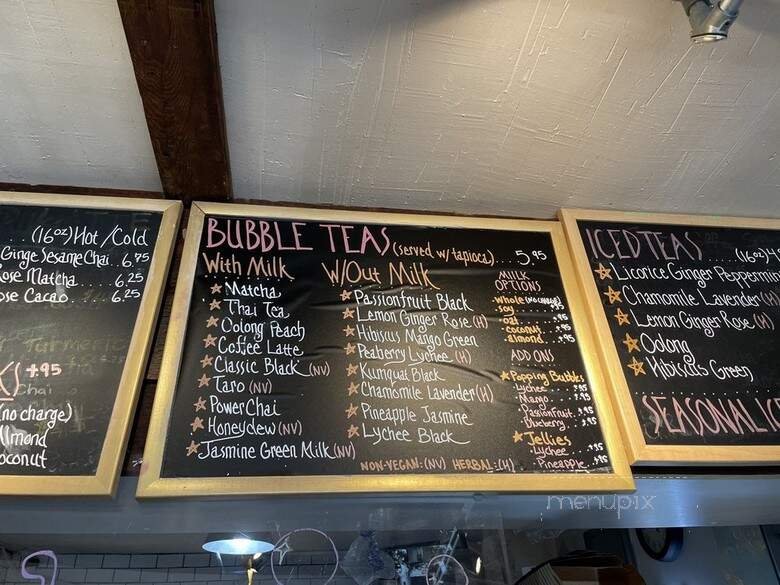 (16oz) Hot / Cold
Ginge Sesame Chai. 6.75
ose Matcha 6.25
ose Cacao. 6.25
+.95
Chai
(no charge)
lmond
oconut
BUBBLE TEAS (served w/ tapioca)... 5.95
With Milk
Matcha
Thai Tea
Oolong Peach
Coffee Latte
Classic Black (NV)
Taro (NV)
Power Chai
Honeydew (NV)
Jasmine Green Milk (NV)
W/Out Milk
Passionfruit Black
Lemon Ginger Rose (H)
Hibiscus Mango Green
Peaberry Lychee (H)
Kumquat Black
Chamomile Lavender (H)
Pineapple Jasmine
Lychee Black
NON-VEGAN: (NV) HERBAL: (H)
MILK
OPTIONS
whole (no charge)
soy
oat .95
coconut .95
almond .95
ADD ONS
Popping Bubbles
Lychee .95
Mango .95
Passionfruit .95
Blueberry .95
Jellies
Lychee .95
Pineapple .95
ICED TEAS (16oz)
Licorice Ginger Peppermin
Chamomile Lavender (H
Lemon Ginger Rose (H)
Oolong
Hibiscus Green
SEASONAL ICE
menupix